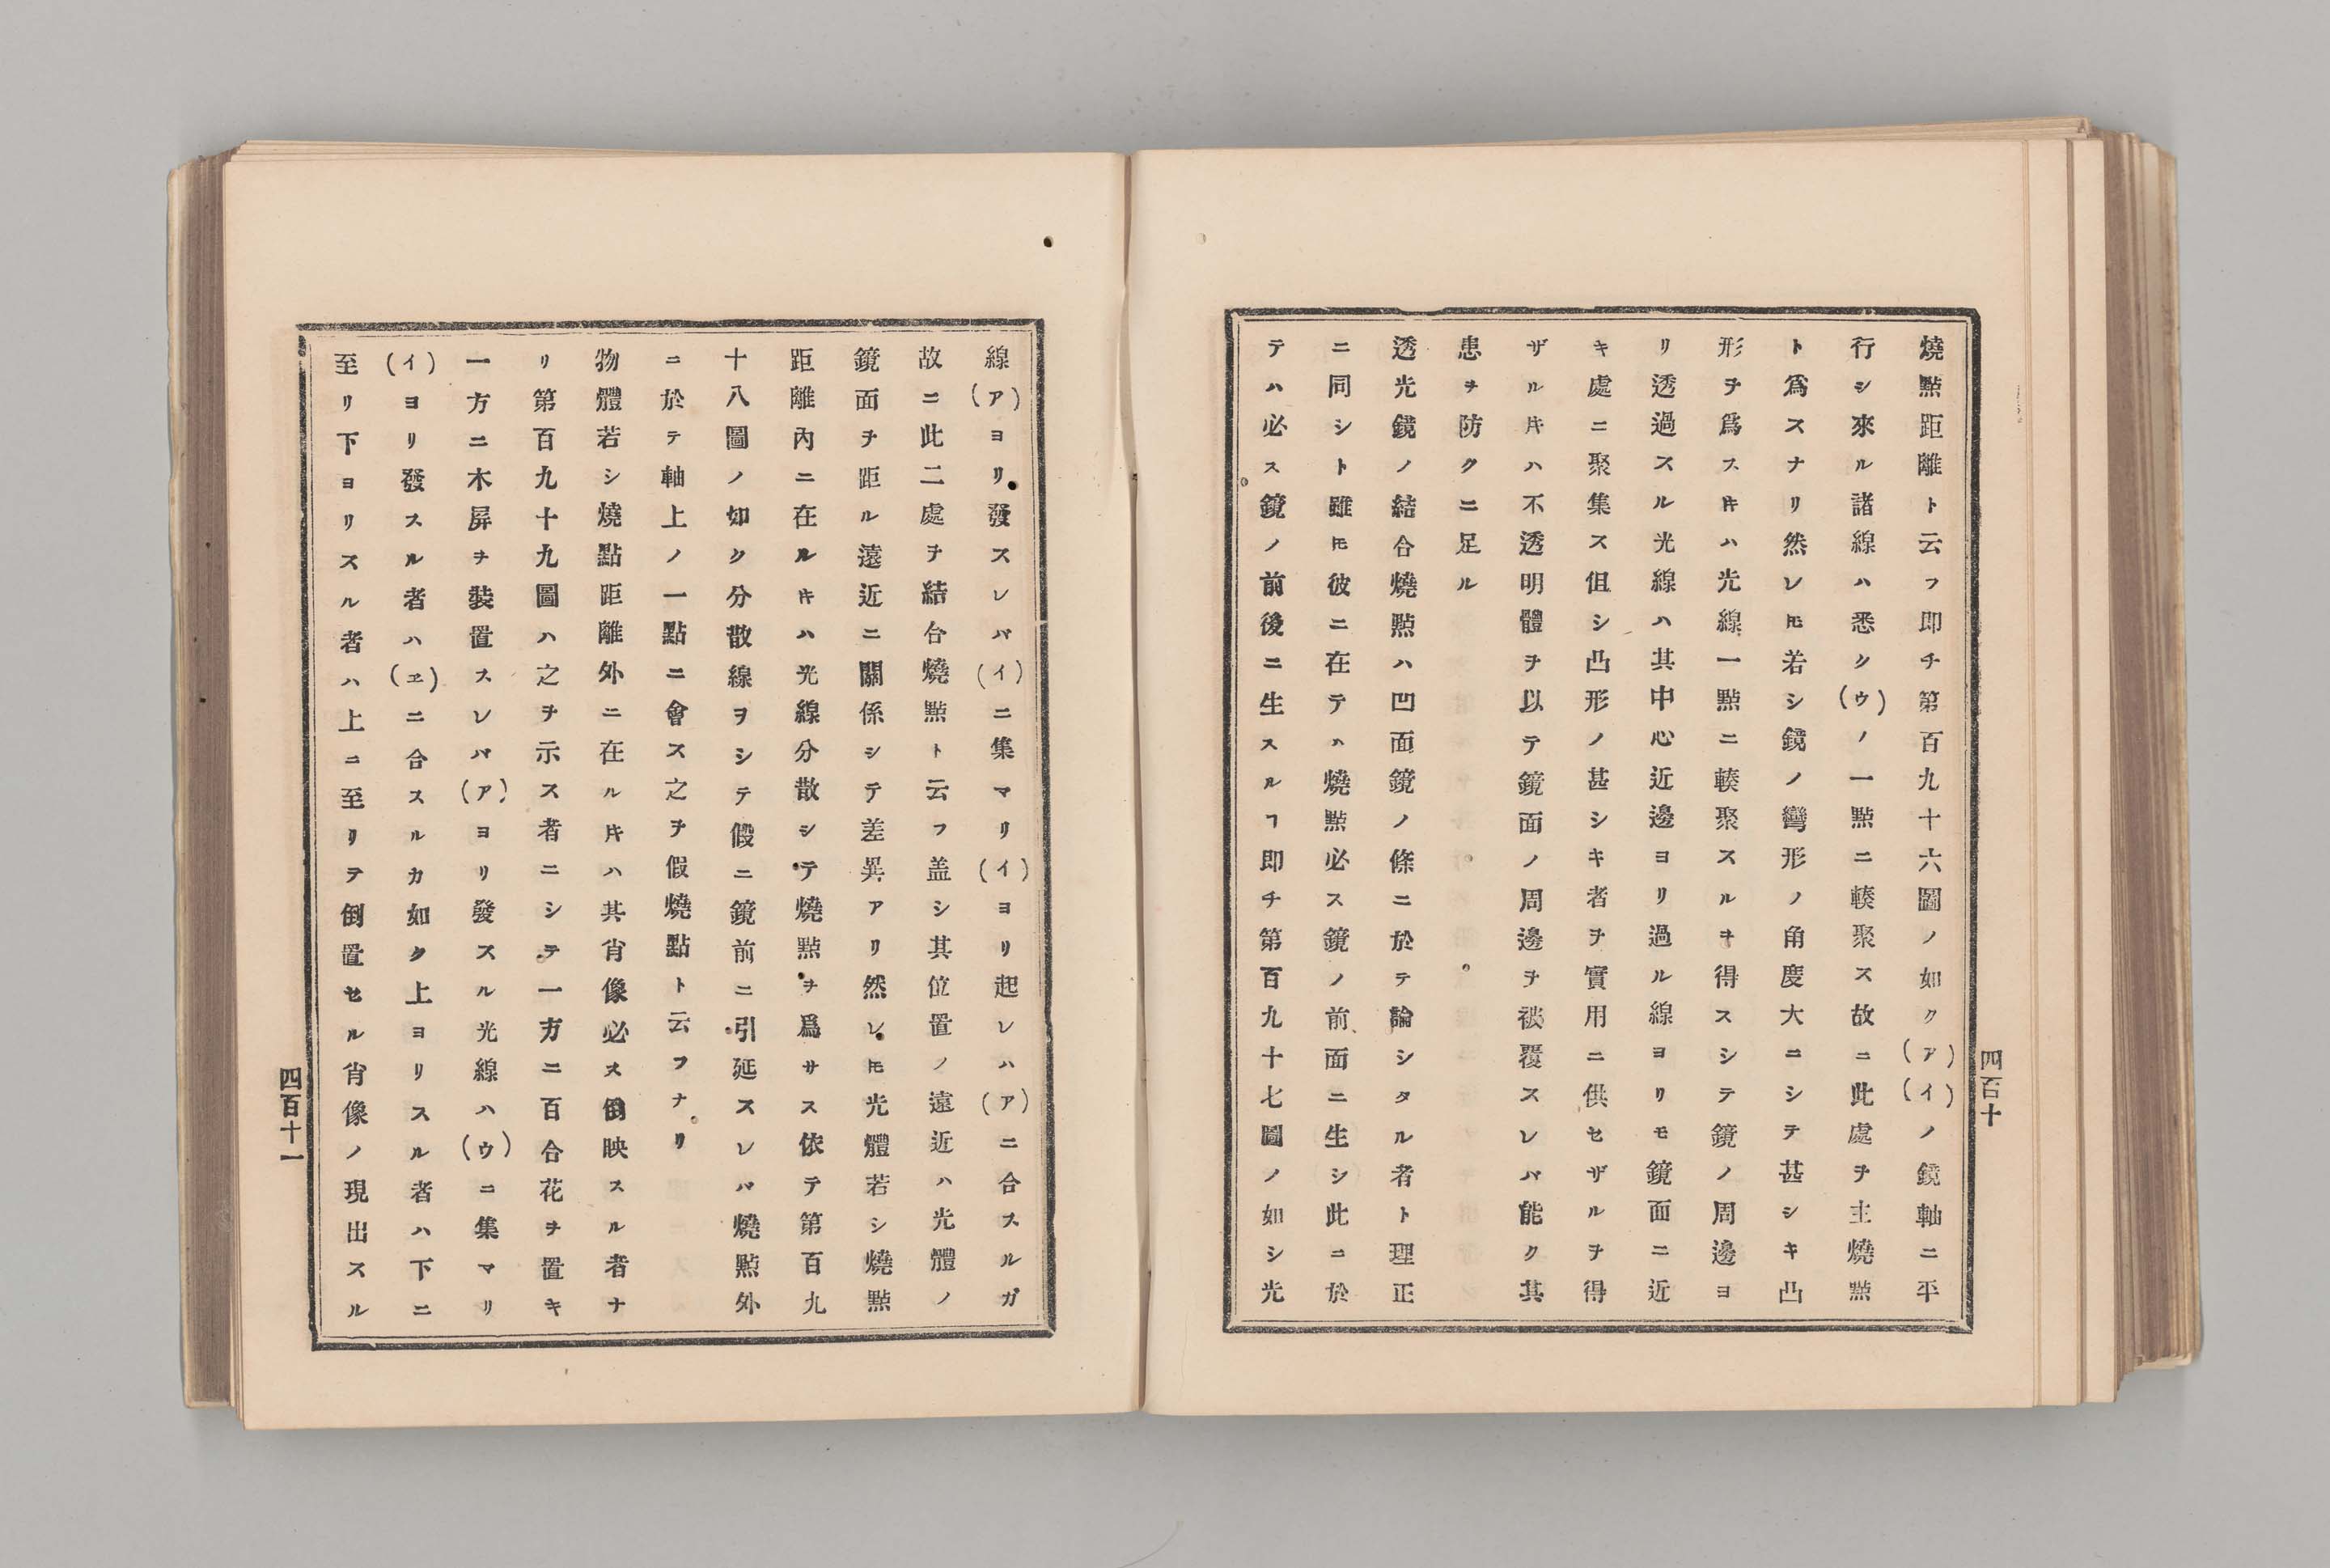 燒點距離ト云フ即チ第百九十六圖ノ如ク(ア)(イ)ノ鏡軸ニ平
行シ來ル諸線ハ悉ク(ウ)ノ一點ニ輳聚ス故ニ此處ヲ主燒點
ト爲スナリ然レ𪜈若シ鏡ノ彎形ノ角度大ニシテ甚シキ凸
形ヲ爲スキハ光線一點ニ輳聚スルヿヲ得スシテ鏡ノ周邊ヨ
リ透過スル光線ハ其中心近邊ヨリ過ル線ヨリモ鏡面ニ近
キ處ニ聚集ス但シ凸形ノ甚シキ者ヲ實用ニ供セザルヲ得
ザル𪜈ハ不透明體ヲ以テ鏡面ノ周邊ヲ被覆スレバ能ク其
患ヲ防クニ足ル
透光鏡ノ結合燒點ハ凹面鏡ノ條ニ於テ論シタル者ト理正
ニ同シト雖𪜈彼ニ在テハ燒點必ス鏡ノ前面ニ生シ此ニ於
テハ必ス鏡ノ前後ニ生スルヿ即チ第百九十七圖ノ如シ光
四百十
線(ア)ヨリ發スレバ(イ)ニ集マリ(イ)ヨリ起レハ(ア)ニ合スルガ
故ニ此二處ヲ結合燒點ト云フ盖シ其位置ノ遠近ハ光體ノ
鏡面ヲ距ル遠近ニ關係シテ差異アリ然レ𪜈光體若シ燒點
距離內ニ在ルキハ光線分散シテ燒點ヲ爲サス依テ第百九
十八圖ノ如ク分散線ヲシテ假ニ鏡前ニ引延スレバ燒點外
ニ於テ軸上ノ一點ニ會ス之ヲ假燒點ト云フナリ
物體若シ燒點距離外ニ在ルキハ其肖像必ス倒映スル者ナ
リ第百九十九圖ハ之ヲ示ス者ニシテ一方ニ百合花ヲ置キ
一方ニ木屏ヲ裝置スレバ(ア)ヨリ發スル光線ハ(ウ)ニ集マリ
(イ)ヨリ發スル者ハ(ヱ)ニ合スルカ如ク上ヨリスル者ハ下ニ
至リ下ヨリスル者ハ上ニ至リテ倒置セル肖像ノ現出スル
四百十一